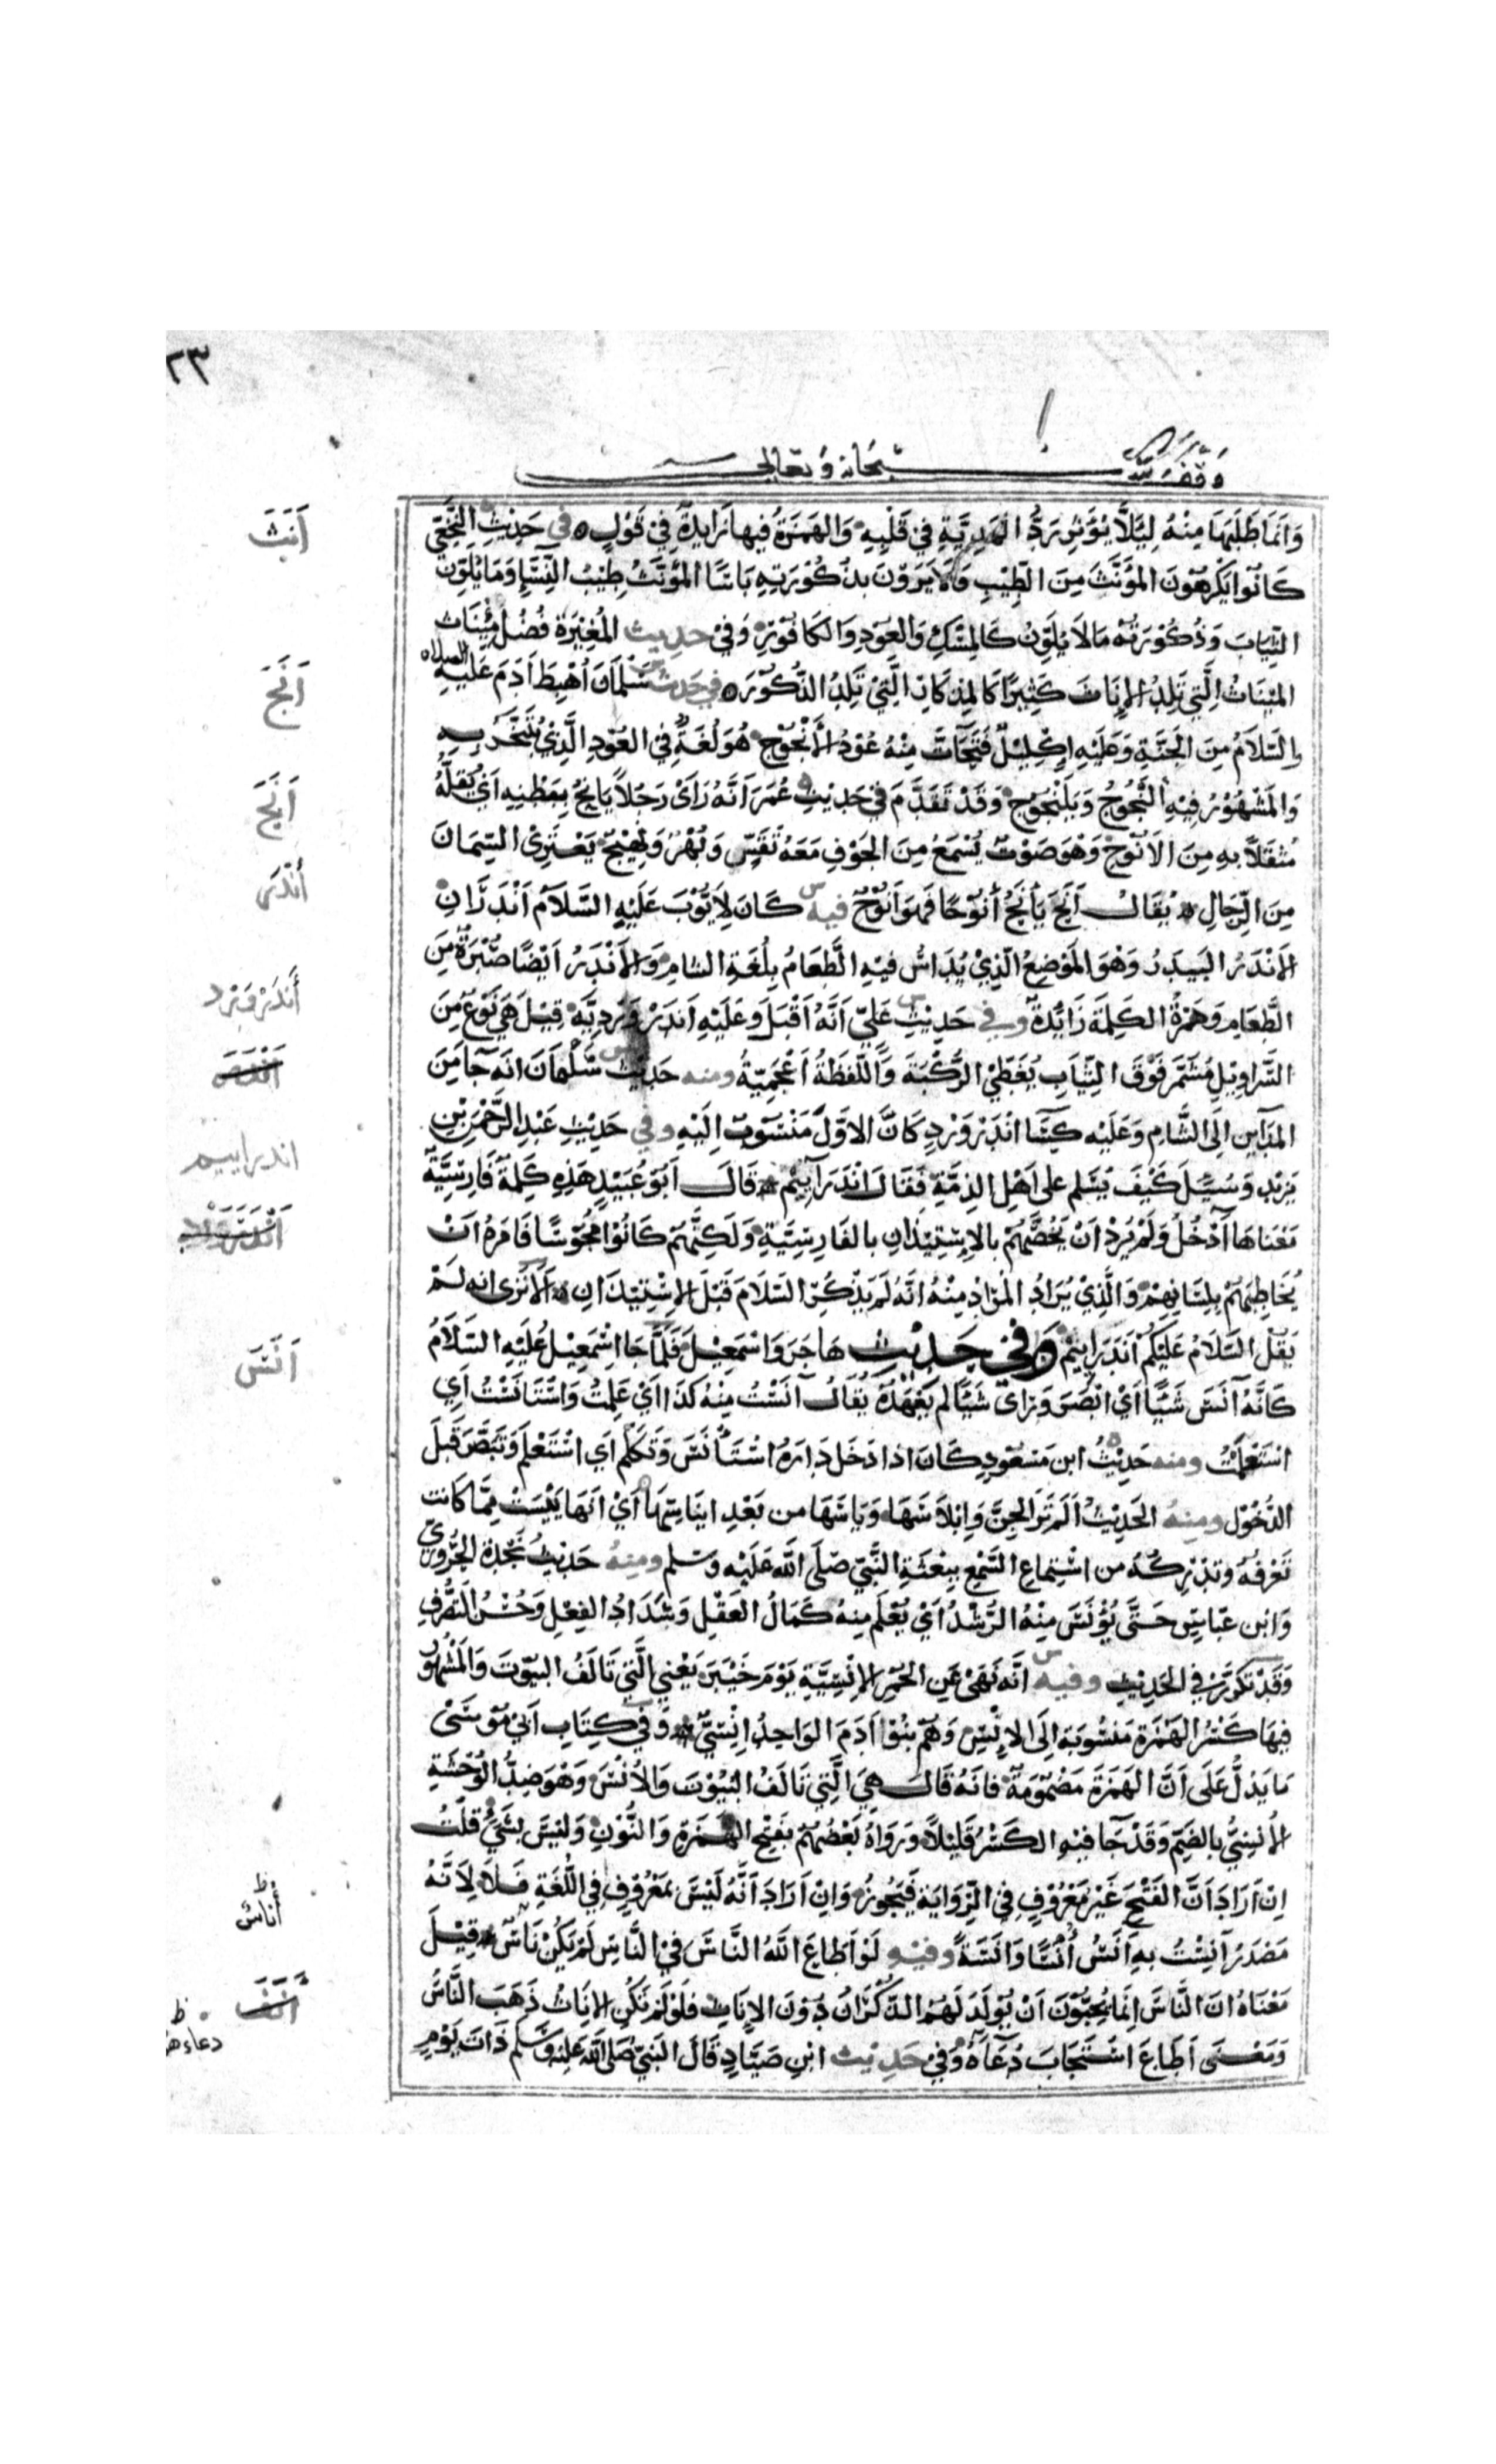 ٢٣
وقف لله سبحانه وتعالى
وَاِنَّمَا طَلَبَهَا مِنْهُ لِيَلَّا يُؤَثِّرَ رَدُّ الهَدِيَّةِ فِي قَلْبِهِ وَالهَمْزَةُ فِيهَا زَايِدَةٌ فِي قَوْلٍ في حَدِيْثِ النَّخَعِيّ
كَانُوْا يَكْرَهُوْنَ المُؤَنَّثَ مِنَ الطِّيْبِ وَلَا يَرَوْنَ بِذُكُوْرَتِهِ بَاسًا المُؤَنَّثُ طِيْبُ النِّسَاءِ وَمَا يُلَوِّنُ
الثِّيَابَ وَذُكُوْرَتُهُ مَا لَا يُلَوِّنُ كَالمِسْكِ وَالعُوْدِ وَالكَافُوْرِ وَفِيْ حديث المُغِيْرَةِ فُضُلٌ مِيْنَاث
المِيْنَاثُ الَّتِي تَلِدُ الاِنَاثَ كَثِيْرًا كَالمِذْكَارِ الَّتِيْ تَلِدُ الذُّكُوْرَ في حديث سَلْمَانَ اُهْبِطَ اٰدَمُ عَلَيْهِ الصلاه
وَالسَّلَامُ مِنَ الجَنَّةِ وَعَلَيْهِ اِكْلِيْلٌ فَتَحَاتَّ مِنْهُ عُوْدُ الأَنْجُوْجِ هُوَ لُغَةٌ فِي العُوْدِ الَّذِيْ يُتَبَخَّرُ بِهِ
وَالمَشْهُوْرُ فِيْهِ النْجُوْجُ وَيَلَنْجُوْجُ وَقَدْ تَقَدَّمَ فِيْ حَدِيْثِ عُمَرَ اَنَّهُ رَاَىْ رَجُلًا يَانِحُ بِبَطْنِهِ اَيْ يُقِلُّهُ
مُثْقَلًا بِهِ مِنَ الاُنُوْحِ وَهْوَ صَوْتٌ يُسْمَعُ مِنَ الجَوْفِ مَعَهُ نَفَسٌ وَبُهْرٌ وَنَهِيْجٌ يَعْتَرِيْ السِّمَانَ
مِنَ الرِّجَالِ يُقَالُ اَنَحَ يَأْنِحُ أُنُوْحًا فَهُوَ اَنُوْحٌ فيه كَانَ لِاَيُّوْبَ عَلَيْهِ السَّلَامُ اَنْدَرَانِ
الاَنْدَرُ البَيْدَرُ وَهْوَ المَوْضِعُ الَّذِيْ يُدَاسُ فِيْهِ الطَّعَامُ بِلُغَةِ الشامِ وَالأَنْدَرُ اَيْضًا صُبْرَةٌ مِنَ
الطَّعَامِ وَهَمْزَةُ الكَلِمَةِ زَائِدَةٌ وفي حَدِيْثِ عَلِيٍّ اَنَّهُ اَقْبَلَ وَعَلَيْهِ اَنْدَرْوَرْدِيَّةٌ قِيْلَ هِيَ نَوْعٌ مِنَ
السَّرَاوِيْلِ مُشَمَّر فَوْقَ الثِّيَابِ يُغَطِّيْ الرُّكْبَةَ وَاللَّفْظَةُ اَعْجَمِيَّةٌ ومنه حَدِيْثُ سَلْمَانَ انه جَا مِنَ
المَدَايِنِ اِلَى الشَّامِ وَعَلَيْهِ كِسَا اَنْدَرْوَرْدِ كَانَّ الاوَّلَ مَنْسُوْبٌ اِلَيْهِ وفي حَدِيْثِ عَبْدِ الرَّحْمٰنِ بْنِ
يَزِيْدَ وَسُئِلَ كَيْفَ يُسَلِّم على اَهْلِ الذِّمَّةِ فَقَالَ اَنْدَرَايِيْم قَالَ اَبُوْ عُبَيْدٍ هٰذِهِ كَلِمَةٌ فَارِسِيَّةٌ
مَعْنَاهَا اَدْخُلُ وَلَمْ يُرِدْ اَنْ يَخُصَّهُمْ بِالِاسْتِيْذَانِ بالفَارِسِيَّةِ وَلَكِنَّهُمْ كَانُوْا مَجُوْسًا فَامَرَهُ اَنْ
يُخَاطِبَهُمْ بِلِسَانِهِمْ وَالَّذِيْ يُرَادُ المُرَاد مِنْهُ اَنَّهُ لَمْ يَذْكُرْ السَّلَامَ قَبْلَ الاِسْتِيْذَانِ اَلَا تَرٰى انه لَمْ
يَقُلِ السَّلَامُ عَلَيْكُمْ اَنْدَرَايِيْم وَفي حَدِيْثِ هَاجَرَ وَاسْمٰعِيْلَ فَلَمَّا جَا اِسْمٰعِيْلُ عَلَيْهِ السَّلَامُ
كَاَنَّهُ آنَسَ شَيْئًا اَيْ اَبْصَرَ وَرَاى شَيْئًا لم يَعْهَدْهُ يُقَالُ آنَسْتُ مِنْهُ كَذَا اَيْ عَلِمْتُ وَاسْتَانَسْتُ اَيِ
اسْتَعْلَمْتُ ومنه حَدِيْثُ ابن مَسْعُوْدٍ كَانَ اذا دَخَلَ دَارَهُ اسْتَأْنَسَ وَتَكَلَّمَ اَيِ اسْتَعْلَمَ وَتَبَصَّرَ قَبْلَ
الدُّخُوْلِ ومنهُ الحَدِيْثُ اَلَمْ تَرَ الجِنَّ وَاِبْلَاسَهَا وَيَاسَهَا من بَعْدِ ايْنَاسِهَا اَيْ اَنَّهَا يَئِسَتْ مِمَّا كَانَت
تَعْرِفُهُ وَتُدْرِكُهُ من اسْتِمَاعِ السَّمْعِ بِبِعْثَةِ النَّبِيِّ صَلَّى اللّٰهُ عَلَيْهِ وَسَلَّم ومنهُ حَدِيْثُ نَجْدَةَ الحَرُوْرِيِّ
وَابْنِ عَبَّاسٍ حَتَّى يُؤْنَسَ مِنْهُ الرُّشْدُ اَيْ يُعْلَمَ مِنْهُ كَمَالُ العَقْلِ وَسَدَادُ الفِعْلِ وَحُسْنُ التَّصَرُّفِ
وَقَدْ تَكَرَّرَ فِي الحَدِيْثِ وفيه اَنَّهُ نَهَىْ عَنِ الحُمُرِ الاِنْسِيَّةِ يَوْمَ خَيْبَرَ يَعْنِي الَّتِيْ تَالَفُ البُيُوْتَ وَالمَشْهُوْرُ
فِيْهَا كَسْرُ الهَمْزَةِ مَنْسُوْبَة اِلَى الاِنْسِ وَهُمْ بَنُوْا اٰدَمَ الوَاحِدُ اِنْسِيٌّ وَفي كِتَابِ اَبِيْ مُوْسَىْ
مَا يَدُلُّ عَلَى اَنَّ الهَمْزَةَ مَضْمُوْمَةٌ فَانَّهُ قَالَ هِيَ الَّتِي تَالَفُ البُيُوْتَ وَالاُنْسُ وَهْوَ ضِدُّ الوَحْشَةِ
الأُنْسِيُّ بِالضَّمِّ وَقَدْ جَا فيهِ الكَسْرُ قَلِيْلًا وَرَوَاهُ بَعْضُهُمْ بِفَتْحِ الهَمْزَةِ وَالنُّوْنِ وَلَيْسَ بِشَيْءٍ قُلْتُ
اِنْ اَرَادَ اَنَّ الفَتْحَ غَيْرُ مَعْرُوْفٍ فِي الرِّوَايَةِ فَيَجُوْزُ وَاِنْ اَرَادَ اَنَّهُ لَيْسَ بِمَعْرُوْفٍ فِي اللُّغَةِ فَلَا لِاَنَّهُ
مَصْدَرُ اَنِسْتُ بِهِ اٰنَسُ اُنْسًا وَاَنَسَةً وفيهِ لَوْ اَطَاعَ اللّٰهُ النَّاسَ فِيْ النَّاسِ لَمْ يَكُنْ نَاسٌ قِيْلَ
مَعْنَاهُ انَّ النَّاسَ اِنَّمَا يُحِبُّوْنَ اَنْ يُوْلَدَ لَهُمُ الذُّكْرَانُ دُوْنَ الاِنَاثِ فَلَوْ لَمْ تَكُنِ الاِنَاثُ ذَهَبَ النَّاسُ
وَمَعْنَى اَطَاعَ اسْتَجَابَ دُعَاءَهُ وَفِيْ حَدِيْث ابْنِ صَيَّادٍ قَالَ النَّبِيُّ صَلَّى اللّٰهُ عَلَيْهِ وَسَلَّمَ ذَاتَ يَوْمٍ
اَنَثَ
اَنَجَ
اَنَحَ
أندر
أندرورد
اندراييم
اَنَسَ
أناس ظ
اَنَفَ
دعاءهم ظ